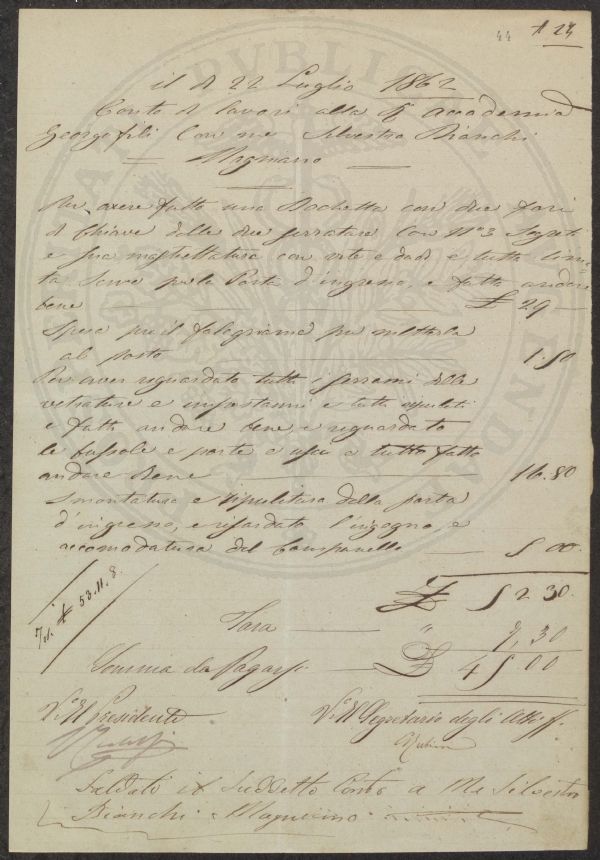 44 A 24
il dì 22 Luglio 1862
Conto di lavori alla R. Accademia
Georgofili Con me Silvestro Bianchi
Magniano
Per avere fatto una Bochetta con due fori
di Chiave delle due serrature Con N° 3 Segreti
e sua mastiettatura con vite e dadi e tutta lima=
ta Serve per la Porta d'ingresso, e fatta andare
bene £ 29
Spese per il falegniame per metterla
al posto 1.50
Per aver reguardato tutti i ferrami delle
vetrature e impostami e tutti ripuliti
e fatti andare bene e reguardato
le bussole e porte e usci e tutto fatto
andare Bene 16.80
Smontatura e ripulitura della porta
d'ingresso, e rifardato l'inzogno, e
accomodatura del Campanello 5 00
£ 52 30
£ 53.11.8.
Tara " 7,30
Somma da Pagarsi £ 45 00
V° Il Presidente V° Il Segretario degli Atti ff.
Saldato il Suddetto Conto a Me Silvestro
Bianchi Magniano